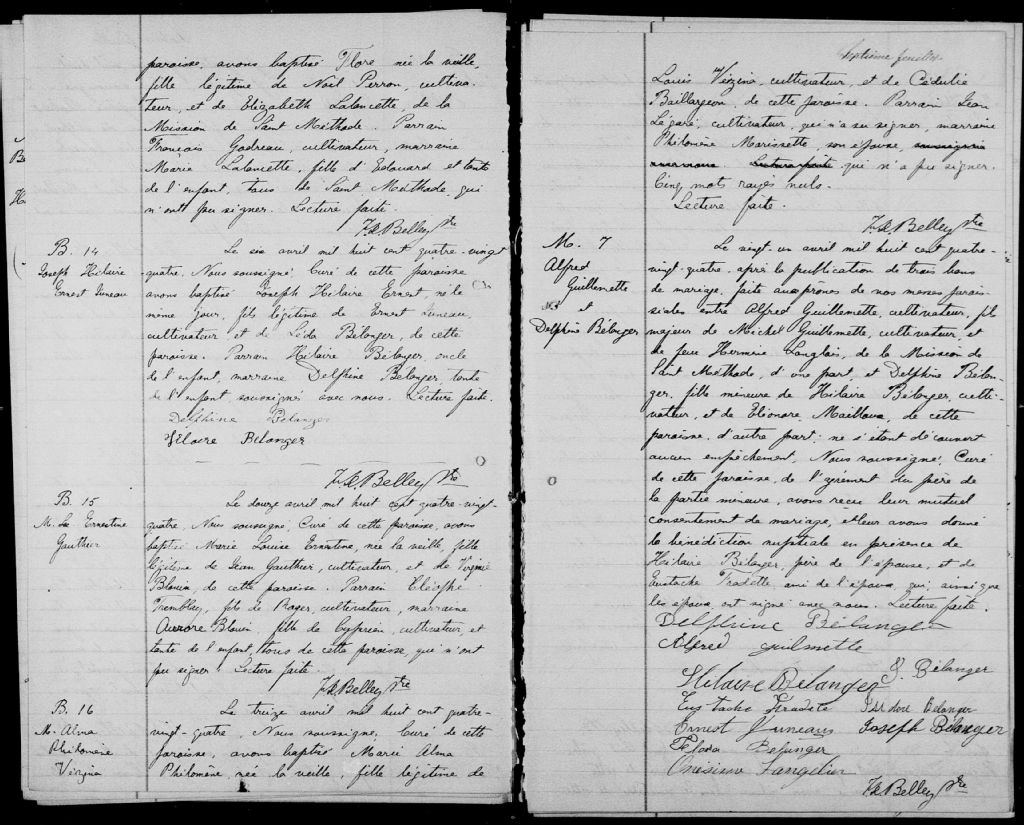 paroisse, avons baptisé Flore née la veille,
fille légitime de Noël Perron, cultiva-
teur, et de Elizabeth Lalancette, de la
Mission de Saint Méthode. Parrain
François Godreau, cultivateur, marraine
Marie Lalancette, fille d'Edouard et tante
de l'enfant, tous de Saint Méthode, qui
n'ont pu signer. Lecture faite.
Belley Ptre
B. 14
Joseph Hilaire
Ernest Juneau
Le six avril mil huit cent quatre-vingt
quatre, Nous soussigné, Curé de cette paroisse
avons baptisé Joseph Hilaire Ernest, né le
même jour, fils légitime de Ernest Juneau,
cultivateur, et de Léda Bélanger, de cette
paroisse. Parrain Hilaire Bélanger, oncle
de l'enfant, marraine Delphine Bélanger, tante
de l'enfant soussignés avec nous. Lecture faite.
Delphine Belanger
Hilaire Bélanger
Belley Ptre
B. 15
M. Ls Ernestine
Gauthier
Le douze avril mil huit cent quatre-vingt-
quatre, Nous soussigné, Curé de cette paroisse, avons
baptisé Marie Louise Ernestine, née la veille, fille
légitime de Jean Gauthier, cultivateur, et de Virginie
Blouin, de cette paroisse. Parrain Cléophe
Tremblay, fils de Roger, cultivateur, marraine
Aurore Blouin, fille de Cyprien, cultivateur, et
tante de l'enfant, tous de cette paroisse, qui n'ont
pu signer. Lecture faite.
Belley Ptre
B. 16
M. Alma
Philomène
Vézina
Le treize avril mil huit cent quatre-
vingt-quatre, Nous soussigné, Curé de cette
paroisse, avons baptisé Marie Alma
Philomène, née la veille, fille légitime de
Septième feuillet
Louis Vézina, cultivateur, et de Cédulie
Baillargeon, de cette paroisse. Parrain Jean
Légaré, cultivateur, qui n'a su signer, marraine
Philomène Morissette, son épouse, soussignée
avec nous. Lecture faite qui n'a pu signer.
Cinq mots rayés nuls.
Lecture faite.
Belley Ptre
M. 7
Alfred
Guillemette
et
Delphine Bélanger
Le vingt-un avril mil huit cent quatre-
vingt-quatre, après la publication de trois bans
de mariage, faite aux prônes de nos messes parois-
siales entre Alfred Guillemette, cultivateur, fils
majeur de Michel Guillemette, cultivateur, et
de feue Hermine Langlais, de la Mission de
Saint Méthode, d'une part, et Delphine Bélan-
ger, fille mineure de Hilaire Bélanger, culti-
vateur, et de Eléonore Mailloux, de cette
paroisse, d'autre part; ne s'étant découvert
aucun empêchement, Nous soussigné, Curé
de cette paroisse, de l'agrément du père de
la partie mineure, avons reçu leur mutuel
consentement de mariage, et leur avons donné
la bénédiction nuptiale en présence de
Hilaire Bélanger, père de l'épouse, et de
Eustache Fradette ami de l'époux qui, ainsi que
les époux ont signé avec nous. Lecture faite.
Delphine Bélanger
Alfred guilmette
Hilaire Belanger S. Bélanger
Eustache Fradete Belanger
Ernest Juneaus Joseph Bélanger
Belanger
Onésime Langelier
Belley Ptre